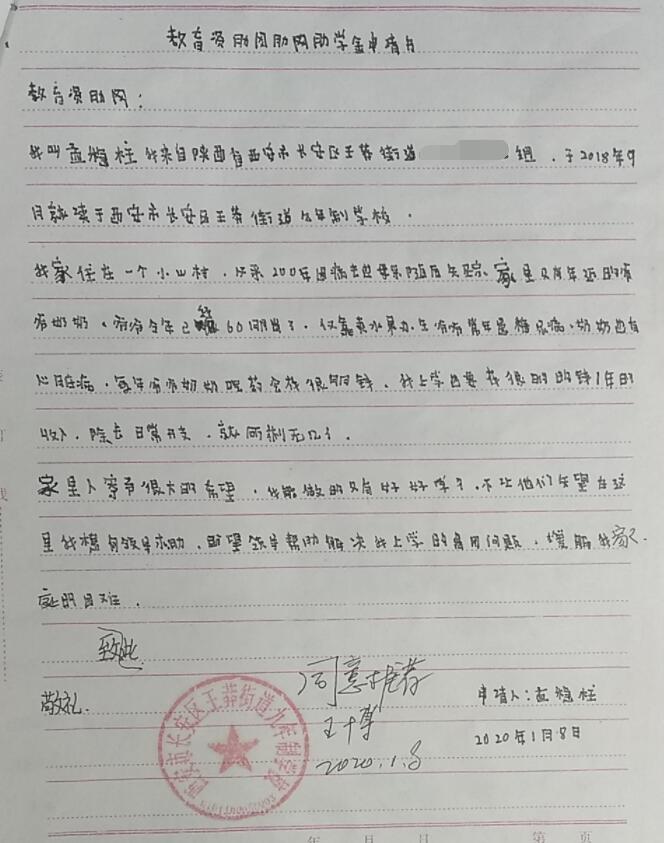 教育资助团助网助学金申请书
教育资助网：
我叫孟梅柱 我来自陕西省西安市长安区王莽街道 组，于2018年9
月就读于西安市长安区王莽街道九年制学校．
我家住在一个小山村，父亲 200年因病去世母亲随后失踪、家里只有年迈的爷
爷奶奶、爷爷今年已经60周岁了．仅靠卖水果为生爷爷常年患糖尿病、奶奶也有
心脏病，每年爷爷奶奶吃药会花很多钱、我上学也要花很多的钱1年的
收入，除去日常开支，就所剩无几了．
家里人寄予很大的希望，我能做的只有好好学习，不让他们失望在这
里我想向领导求助，盼望领导帮助解决我上学的费用问题，缓解我家
庭的困难．
致此
敬礼．
同意推荐
王
2020.1.8
申请人：孟 柱
2020年1月8日
西安市长安区王莽街道九年制学校
年 月 日 第 页